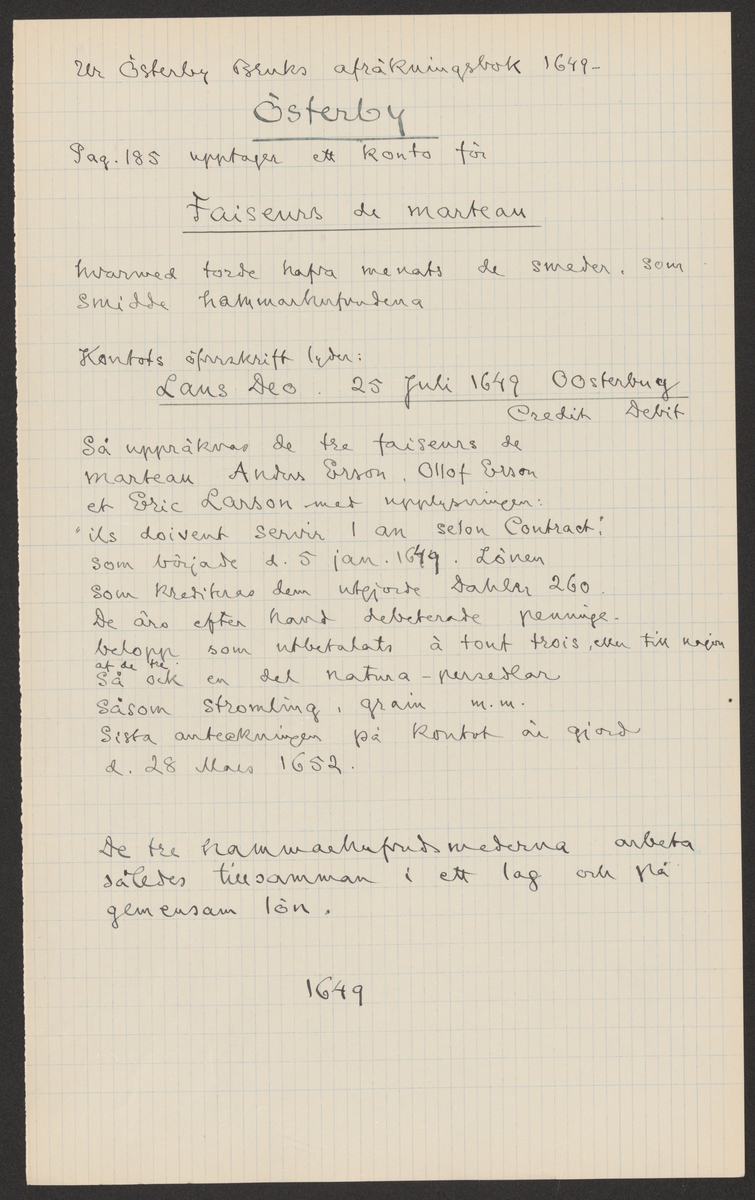 Ur Österby Bruks afräkningsbok 1649-
Österby
Pag. 185 upptager ett konto för
Faiseurs de marteau
hvarmed torde hafva menats de smeder, som
smidde hammarhufvudena
Kontots öfverskrift lyder:
Laus Deo. 25 Juli 1649 Oosterbug
Credit Debit
Så uppräknas de tre faiseurs de
marteau Anders Erson, Ollof Erson
et Eric Larson med upplysningen:
"ils doivent servir 1 an selon Contract"
som började d. 5 jan. 1649. Lönen
som krediteras dem utgjorde Dahler 260.
De äro efter hand debeterade penninge-
belopp som utbetalats à tout trois, eller till någon
af de tre.
Så ock en del natura-persedlar
såsom strömling, grain m.m.
Sista anteckningen på kontot är gjord
d. 28 Mars 1652.
De tre hammarhufvudsmederna arbeta
således tillsamman i ett lag och på
gemensam lön.
1649